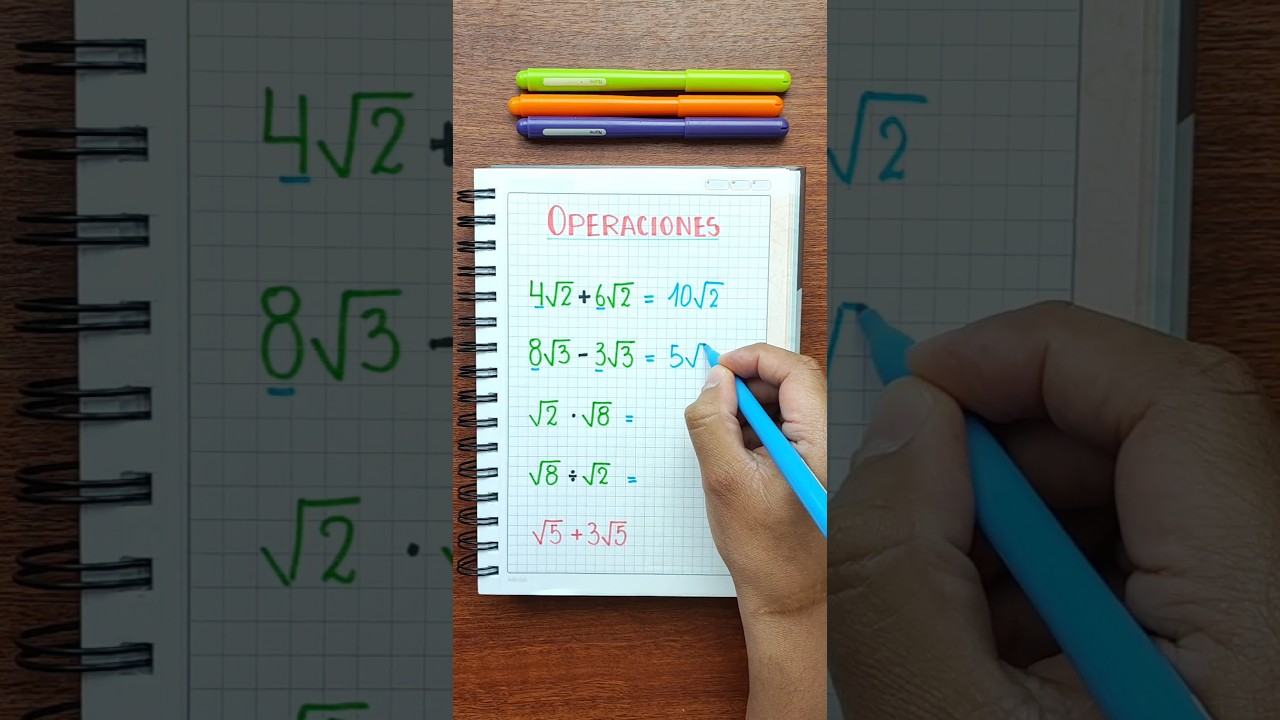 OPERACIONES
4√2 + 6√2 = 10√2
8√3 - 3√3 = 5√
√2 · √8 =
√8 ÷ √2 =
√5 + 3√5